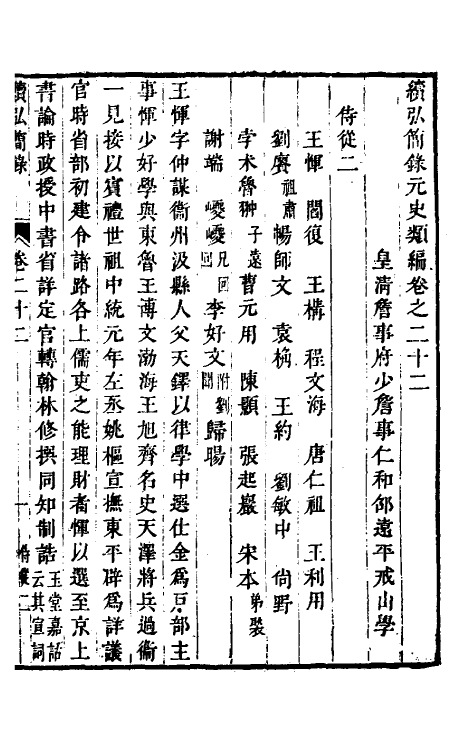 續弘簡錄元史類編卷之二十二
皇清詹事府少詹事仁和邵遠平戒山學
侍從二
王惲　閻復　王構　程文海　唐仁祖　王利用
劉賡祖肅　暢師文　袁桷　王約　劉敏中　尙野
孛朮魯翀子遠　曹元用　陳顥　張起巖　宋本弟褧
謝端　巙巙兄回回　李好文附劉聞　歸暘
王惲字仲謀衞州汲縣人父天鐸以律學中選仕金爲戶部主
事惲少好學與東魯王溥文渤海王旭齊名史天澤將兵過衞
一見接以賓禮世祖中統元年左丞姚樞宣撫東平辟爲詳議
官時省部初建令諸路各上儒吏之能理財者惲以選至京上
書論時政授中書省詳定官轉翰林修撰同知制誥玉堂嘉話云其宣詞
續弘簡錄　卷二十二　一　侍從二